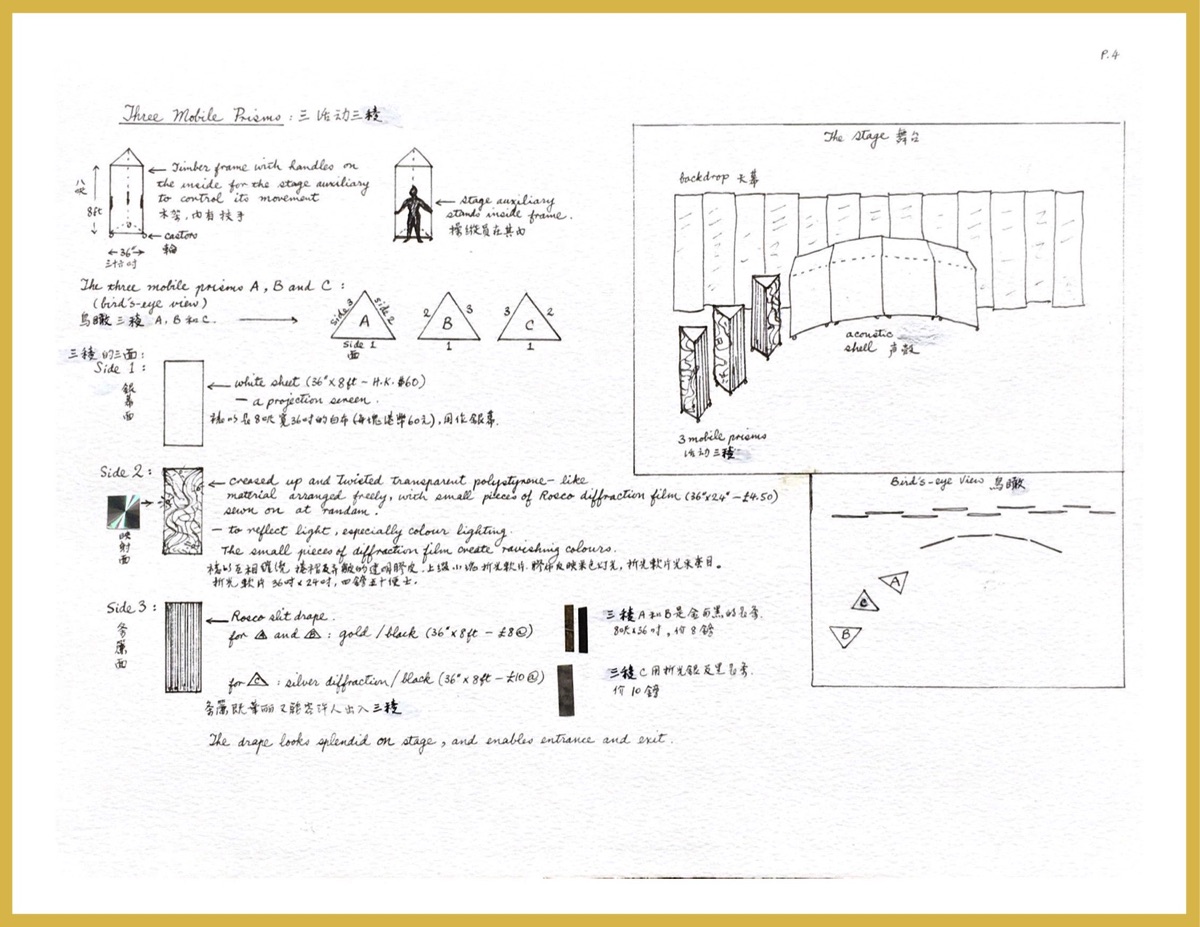 P.4
Three Mobile Prisms : 三活动三稜
Timber frame with handles on
the inside for the stage auxiliary
to control its movement
木茎,內有扶手
八呎
8ft
castors
輪
36"
三十六吋
stage auxiliary
stands inside frame.
操縱員在其內
The three mobile prisms A, B and C :
(bird's-eye view)
鳥瞰三稜 A, B 和 C.
side 3
side 2
A
side 1
面
2
3
B
1
3
2
C
1
三稜的三面:
Side 1 :
銀幕面
white sheet (36"x8ft – H.K.$60)
– a projection screen.
Side 2 :
映射面
creased up and twisted transparent polystyrene-like
material arranged freely, with small pieces of Rosco diffraction film (36"x24" – £4.50)
sewn on at random.
– to reflect light, especially colour lighting.
The small pieces of diffraction film create ravishing colours.
Side 3 :
Rosco slit drape.
for A and B : gold / black (36"x8ft – £8@)
三稜 A 和 B 是金而黑的長条.
for C : silver diffraction / black (36"x8ft – £10@)
三稜 C 用折光銀及黑長条.
价 10 鎊
The drape looks splendid on stage, and enables entrance and exit.
The stage 舞台
backdrop 天幕
acoustic
shell 声殼
3 mobile prisms
活动三稜
Bird's-eye View 鳥瞰
A
C
B